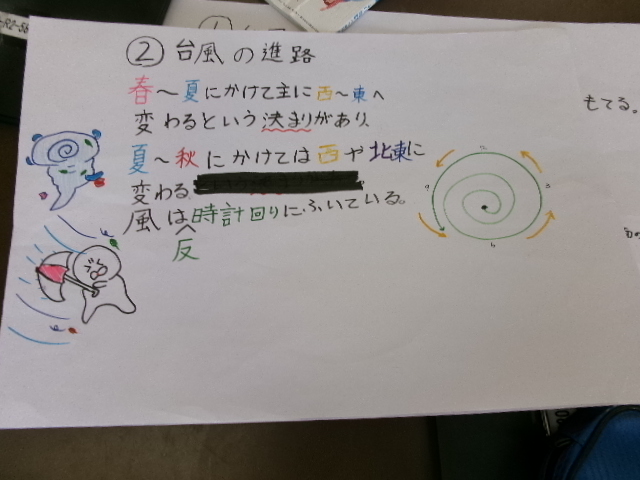 ② 台風の進路
春～夏にかけて主に西～東へ
変わるという決まりがあり、
夏～秋にかけては西や北東に
変わる
風は反時計回りにふいている。
もてる。